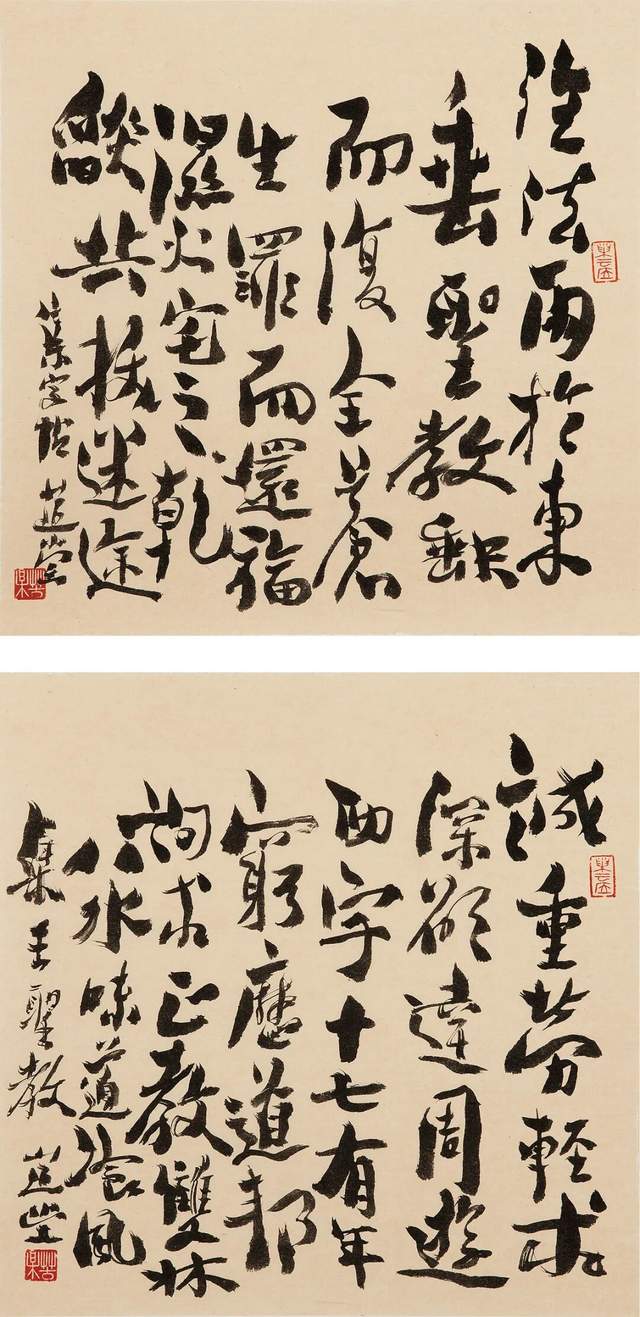 注法雨於東
垂聖教缺
而復全蒼
生罪而還福
濕火宅之乾
燄共拔迷途
誠重勞輕求
深欲達周遊
西宇十七有年
窮歷道邦
詢求正教雙林
八水味道飡風
集王聖教